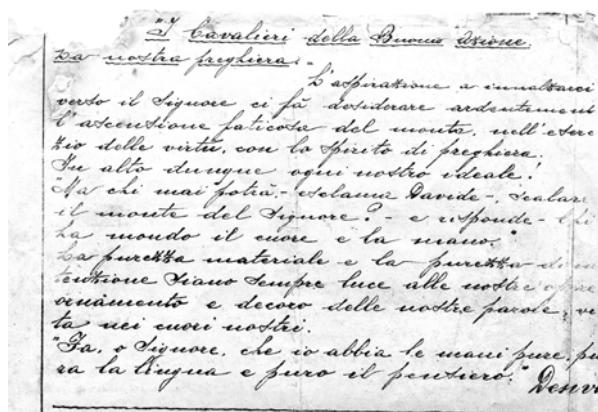 "I Cavalieri della Buona Azione.
La nostra preghiera.-
L'aspirazione a innalzarci
verso il Signore ci fà desiderare ardentement
l'ascensione faticosa del monte, nell'eser
zio delle virtù, con lo spirito di preghiera.
In alto dunque ogni nostro ideale!
Ma chi mai potrà,- esclama Davide-, scalare
il monte del Signore? - e risponde- Chi
ha mondo il cuore e la mano."
La purezza materiale e la purezza d'in
tenzione siano sempre luce alle nostre opere
ornamento e decoro delle nostre parole, vi
ta nei cuori nostri.
"Fa, o Signore, che io abbia le mani pure, pu
ra la lingua e puro il pensiero."